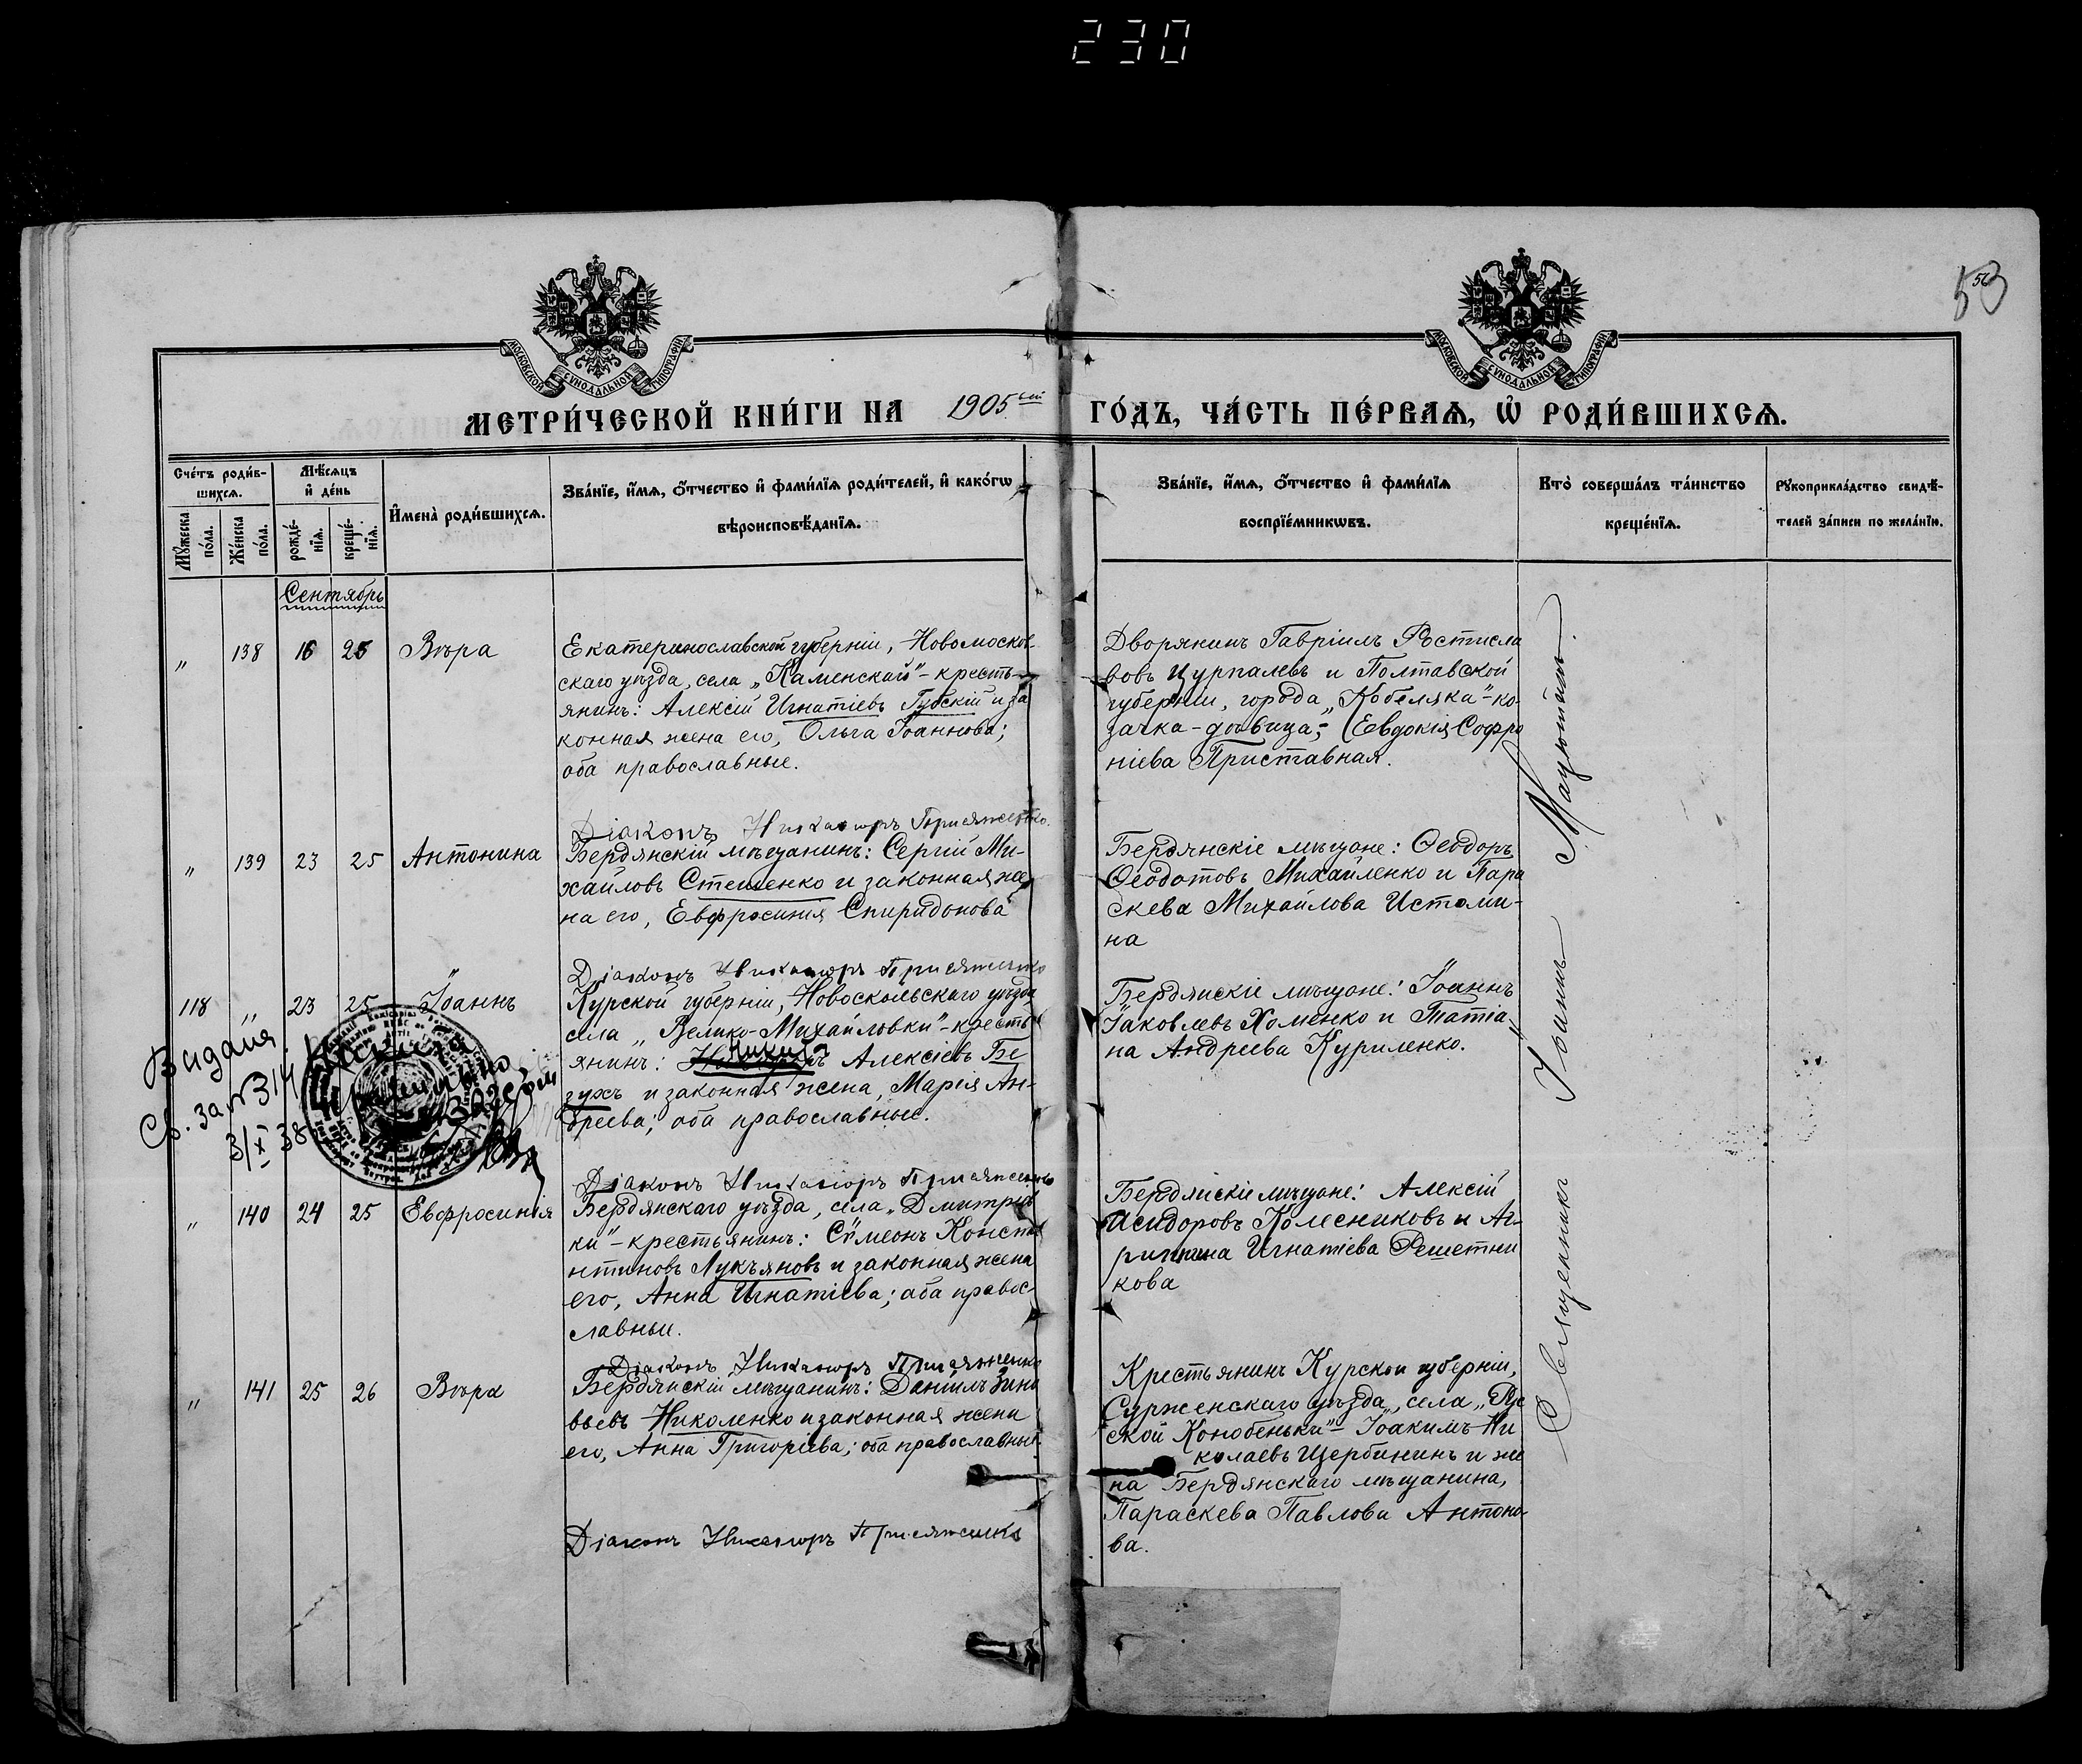 230
53
МОСКОВСКОЙ СѴНОДАЛЬНОЙ ТИПОГРАФІИ
МОСКОВСКОЙ СѴНОДАЛЬНОЙ ТИПОГРАФІИ
МЕТРИ́ЧЕСКОЙ КНИ́ГИ НА 1905 ГО́ДЪ, ЧА́СТЬ ПЕ́РВАѦ, Ѡ҆ РОДИ́ВШИХСѦ.
Сче́тъ роди́в-
шихсѧ.
Мꙋ́жеска по́ла.
Же́нска по́ла.
Мѣ́сѧцъ
и҆ де́нь
рожде́-
нїѧ.
креще́-
нїѧ.
И҆мена̀ роди́вшихсѧ.
Зва́нїе, и҆́мѧ, ѻ҆́тчество и҆ фами́лїѧ роди́телей, и҆ како́гѡ
вѣроисповѣ́данїѧ.
Зва́нїе, и҆́мѧ, ѻ҆́тчество и҆ фами́лїѧ
воспрїе́мникѡвъ.
Кто̀ соверша́лъ та́инство
креще́нїѧ.
Рꙋкоприкла́дство свидѣ́-
телей за́писи по жела́нїю.
Сентябрь
„ 138 16 25 Вѣра
Екатеринославской губерніи, Новомосков
скаго уѣзда, села „Каменскаго" - кресть-
янинъ: Алексій Игнатіевъ Губскій и за
конная жена его, Ольга Іоаннова;
оба православные.
Діаконъ Никаноръ Присяженко.
Дворянинъ Гавріилъ Ростисла
вовъ Цурпалевъ и Полтавской
губерніи, города „Кобеляка" - ко-
зачка - дѣвица, - Евдокія Софро
ніева Приставная.
„ 139 23 25 Антонина
Бердянскій мѣщанинъ: Сергій Ми-
хайловъ Стешенко и законная же
на его, Евфросинія Спиридонова
Діаконъ Никаноръ Присяженко
Бердянскіе мѣщане: Ѳеодоръ
Ѳеодотовъ Михайленко и Пара
скева Михайлова Истоми-
на
118 „ 23 25 Іоаннъ
Курской губерніи, Новоскольскаго уѣзда
села „Велико-Михайловки" - кресть
янинъ: Никита Алексіевъ Бе
зухъ и законная жена, Марія Ан-
дреева; оба православные.
Діаконъ Никаноръ Присяженко
Бердянскіе мѣщане: Іоаннъ
Іаковлевъ Хоменко и Татіа
на Андреева Куриленко.
Видана
Св. за № 314
3/X 38
„ 140 24 25 Евфросинія
Бердянскаго уѣзда, села „Дмитров
ки" - крестьянинъ: Сѵмеонъ Конста
нтиновъ Лукъяновъ и законная жена
его, Анна Игнатіева; оба правос-
славные.
Діаконъ Никаноръ Присяженко
Бердянскіе мѣщане: Алексій
Исидоровъ Колесниковъ и Аг-
рипина Игнатіева Решетни
кова
„ 141 25 26 Вѣра
Бердянскій мѣщанинъ: Даніилъ Зино
вьевъ Николенко и законная жена
его, Анна Григоріева; оба православные.
Діаконъ Никаноръ Присяженко
Крестьянинъ Курской губерніи,
Сурженскаго уѣзда, села „Рус
ской Конобеньки" - Іоакимъ Ни
колаевъ Щербининъ и же
на Бердянскаго мѣщанина,
Параскева Павлова Антоно-
ва.
Священникъ Іоаннъ